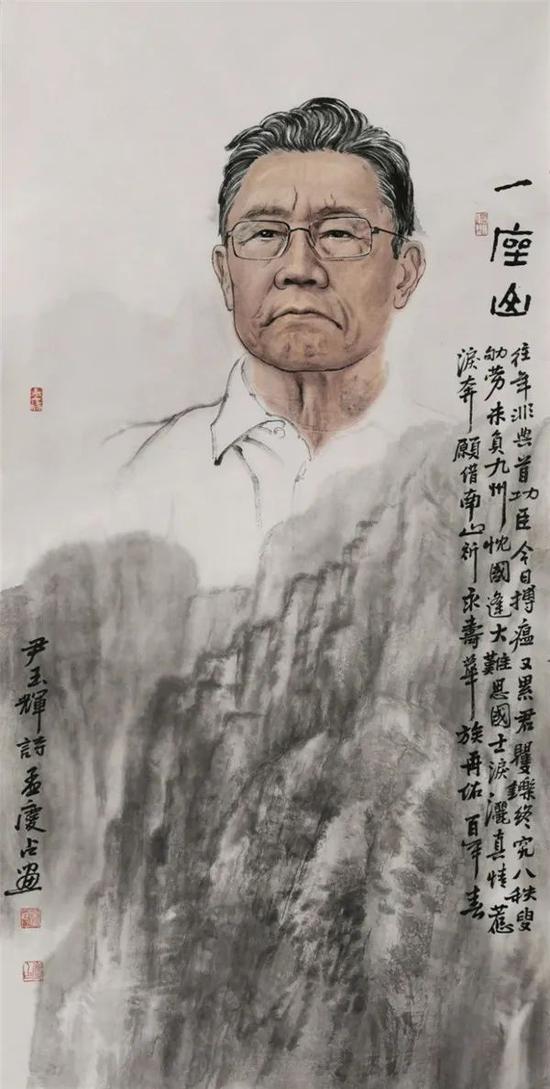 一座山
往年非典首功臣今日搏瘟又累君矍鑠終究八秩叟
劬勞未負九州忱國逢大難思國士淚灑真情惹
淚奔願借南山祈永壽華族再佑百年春
尹玉輝詩孟慶占畫